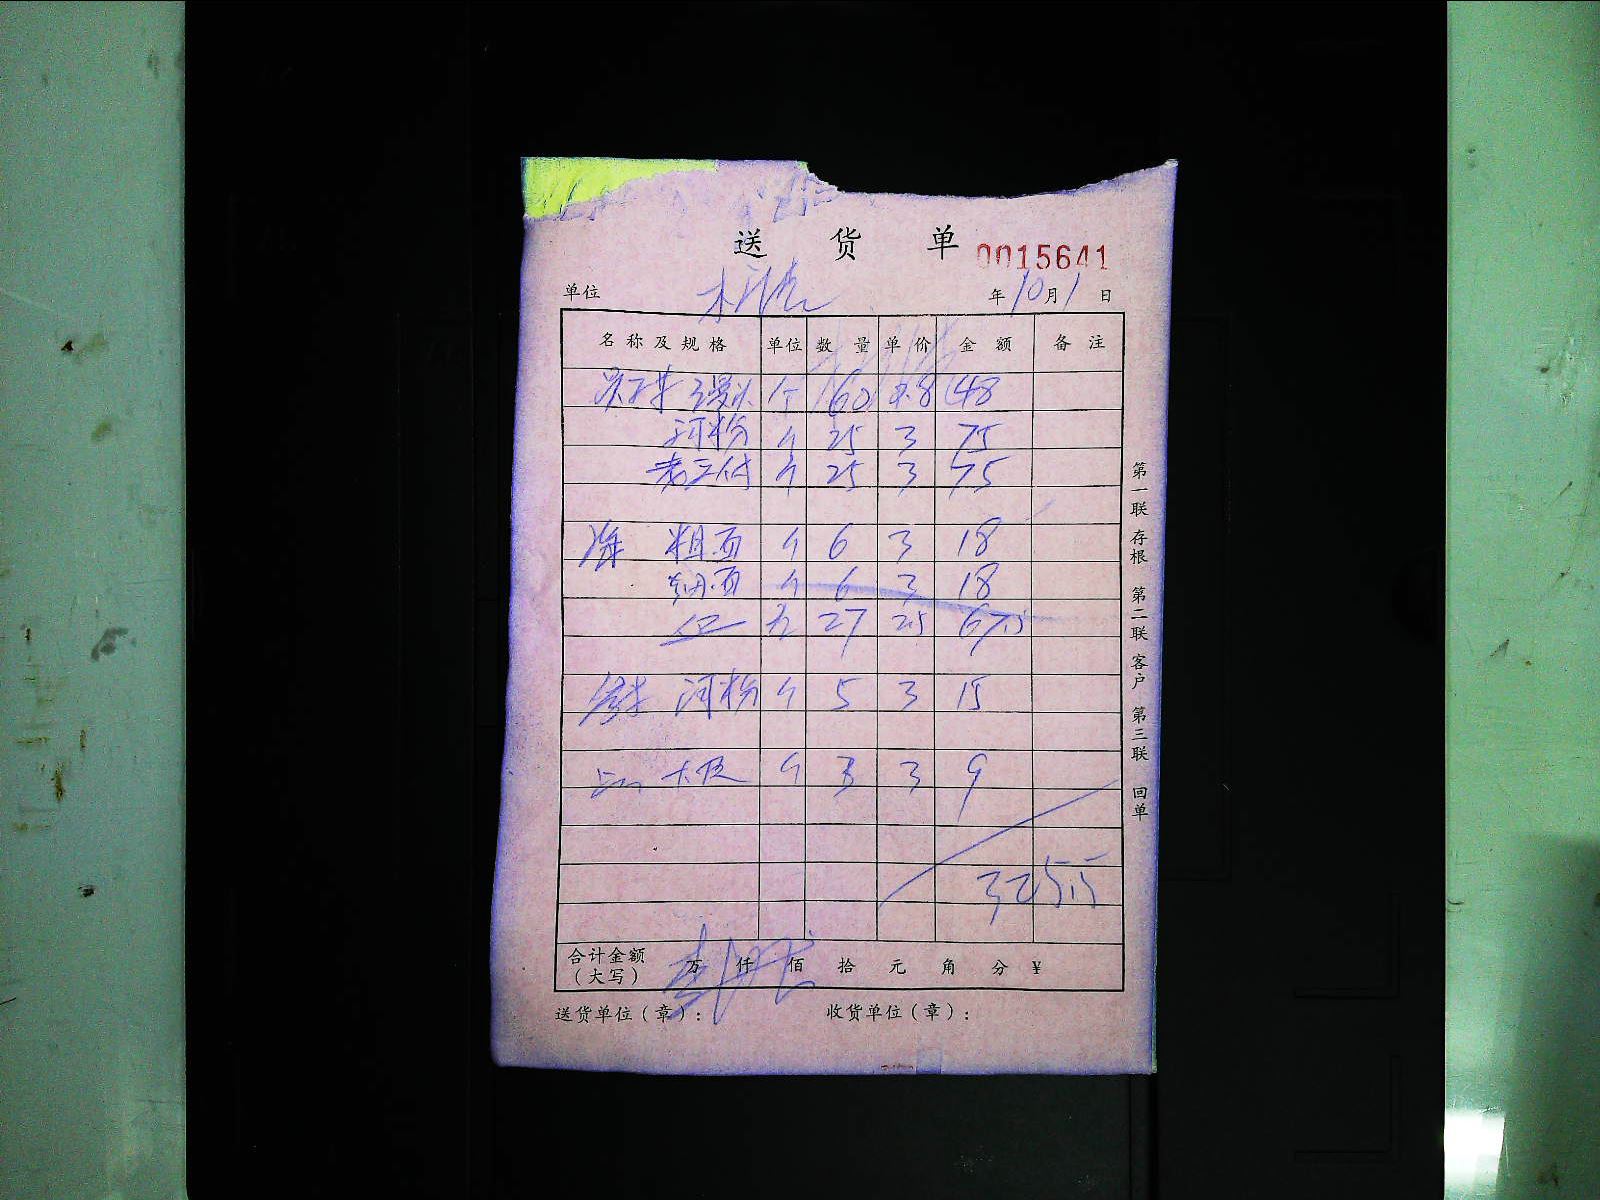 送货单 0015641
单位 年10月1日
名称及规格 单位 数量 单价 金额 备注
个 60 0.8 48
河粉 个 25 3 75
个 25 3 75
粗面 个 6 3 18
细面 个 6 3 18
27 2.5 67.5
河粉 个 5 3 15
大皮 个 3 3 9
325.5
合计金额（大写） 万 仟 佰 拾 元 角 分 ¥
送货单位（章）： 收货单位（章）：
第一联 存根 第二联 客户 第三联 回单